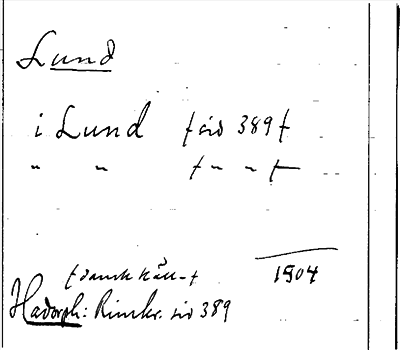 Lund
i Lund {sid 389}
" " { " " }
1504
{dansk käll-}
Hadorph: Rimkr. sid 389